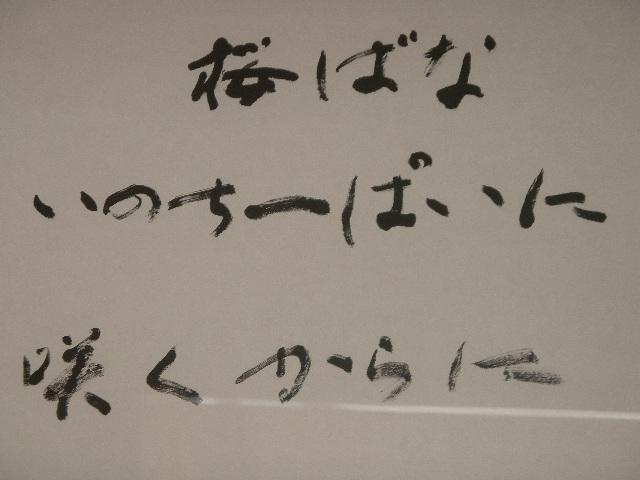 桜ばな
いのち一ぱいに
咲くからに